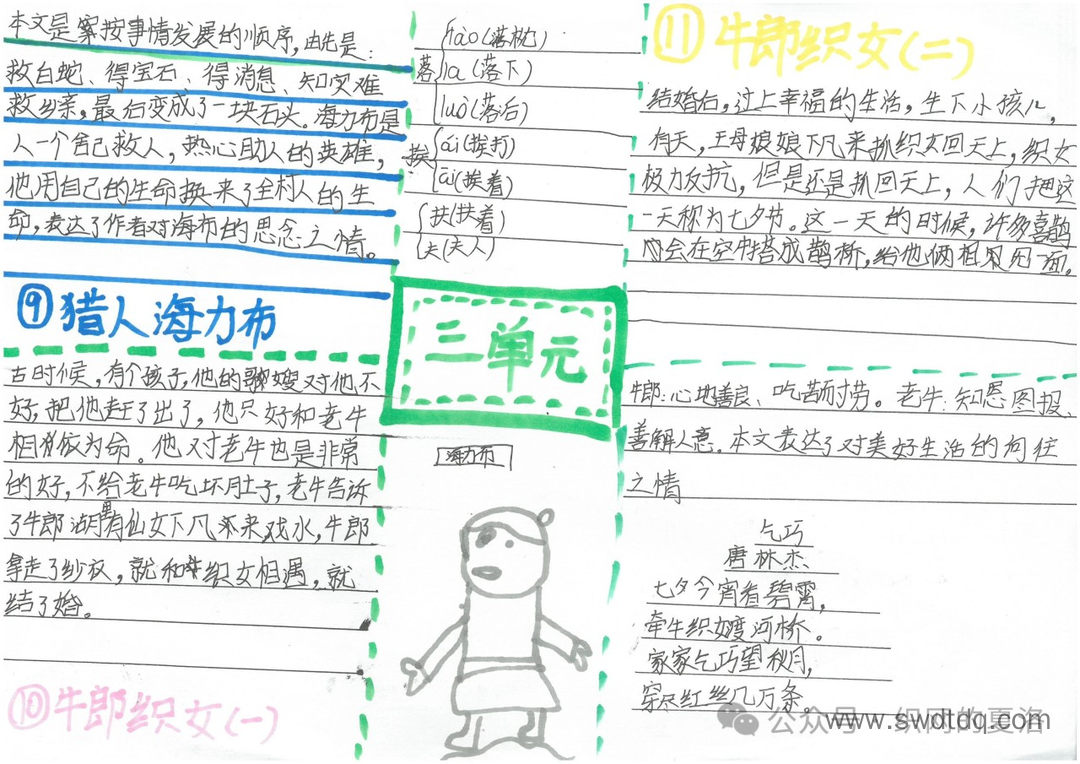 本文是按事情发展的顺序,由先是:
救白蛇、得宝石、得消息、知实难
救乡亲,最后变成了一块石头。海力布是
人一个舍己救人,热心助人的英雄,
他用自己的生命换来了全村人的生
命,表达了作者对海布的思念之情。
⑨猎人海力布
古时候,有个孩子,他的哥嫂对他不
好,把他赶了出了,他只好和老牛
相依为命。他对老牛也是非常
的好,不给老牛吃坏肚子,老牛告诉
了牛郎湖里有仙女下凡来戏水,牛郎
拿走了纱衣,就和织女相遇,就
结了婚。
⑩牛郎织女(一)
落
lào(落枕)
la(落下)
luò(落后)
挨
ái(挨打)
āi(挨着)
扶(扶着)
夫(夫人)
三单元
海力布
⑪牛郎织女(二)
结婚后,过上幸福的生活,生下小孩儿,
有天,王母娘娘下凡来抓织女回天上,织女
极力反抗,但是还是抓回天上,人们把这
一天称为七夕节。这一天的时候,许多喜鹊
会在空中搭成鹊桥,给他俩相见见面。
牛郎:心地善良、吃苦耐劳。老牛:知恩图报、
善解人意。本文表达了对美好生活的向往
之情
乞巧
唐 林杰
七夕今宵看碧霄,
牵牛织女渡河桥。
家家乞巧望秋月,
穿尽红丝几万条。
公众号 · 织网的夏洛
www.swdtdq.com